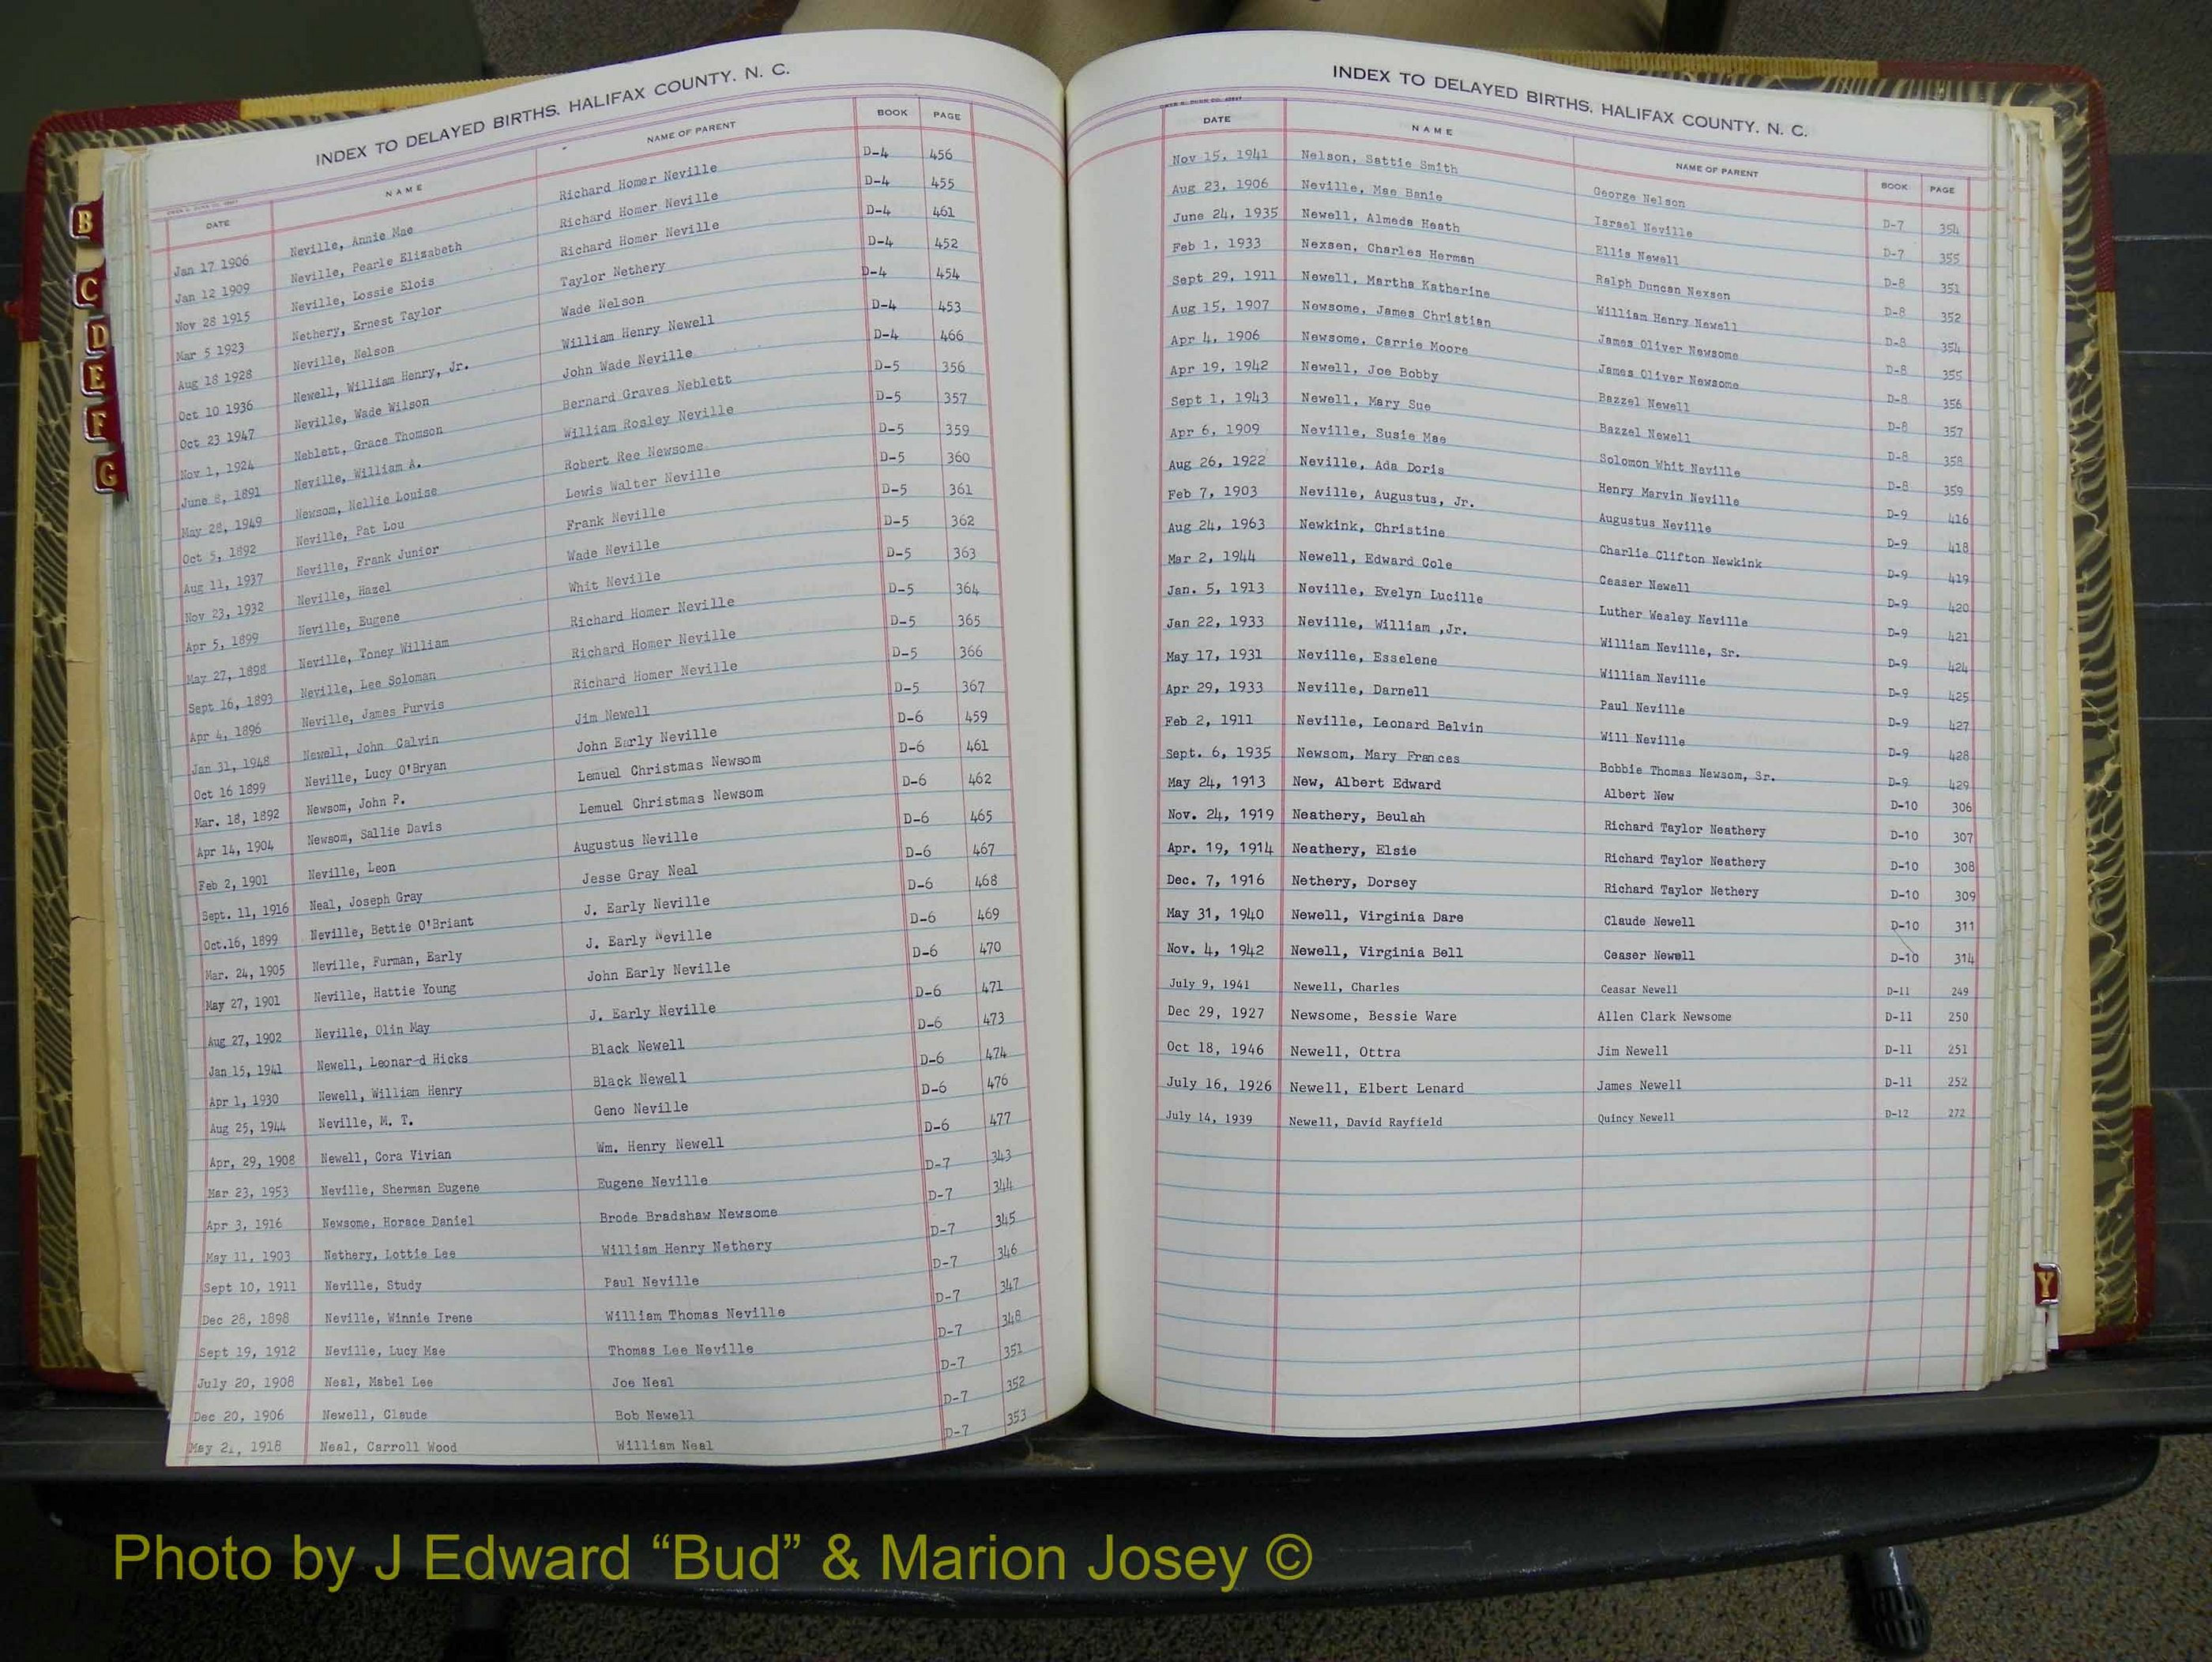 INDEX TO DELAYED BIRTHS. HALIFAX COUNTY. N. C.
DATE NAME NAME OF PARENT BOOK PAGE
Jan 17 1906 Neville, Annie Mae Richard Homer Neville D-4 456
Jan 12 1909 Neville, Pearle Elizabeth Richard Homer Neville D-4 455
Nov 28 1915 Neville, Lossie Elois Richard Homer Neville D-4 461
Mar 5 1923 Nethery, Ernest Taylor Taylor Nethery D-4 452
Aug 18 1928 Neville, Nelson Wade Nelson D-4 454
Oct 10 1936 Newell, William Henry, Jr. William Henry Newell D-4 453
Oct 23 1947 Neville, Wade Wilson John Wade Neville D-4 466
Nov 1, 1924 Neblett, Grace Thomson Bernard Graves Neblett D-5 356
June 8, 1891 Neville, William A. William Rosley Neville D-5 357
May 28, 1949 Newsom, Nellie Louise Robert Ree Newsome D-5 359
Oct 5, 1892 Neville, Pat Lou Lewis Walter Neville D-5 360
Aug 11, 1937 Neville, Frank Junior Frank Neville D-5 361
Nov 23, 1932 Neville, Hazel Wade Neville D-5 362
Apr 5, 1899 Neville, Eugene Whit Neville D-5 363
May 27, 1898 Neville, Toney William Richard Homer Neville D-5 364
Sept 16, 1893 Neville, Lee Soloman Richard Homer Neville D-5 365
Apr 4, 1896 Neville, James Purvis Richard Homer Neville D-5 366
Jan 31, 1948 Newell, John Calvin Jim Newell D-5 367
Oct 16 1899 Neville, Lucy O'Bryan John Early Neville D-6 459
Mar. 18, 1892 Newsom, John P. Lemuel Christmas Newsom D-6 461
Apr 14, 1904 Newsom, Sallie Davis Lemuel Christmas Newsom D-6 462
Feb 2, 1901 Neville, Leon Augustus Neville D-6 465
Sept. 11, 1916 Neal, Joseph Gray Jesse Gray Neal D-6 467
Oct.16, 1899 Neville, Bettie O'Briant J. Early Neville D-6 468
Mar. 24, 1905 Neville, Furman, Early J. Early Neville D-6 469
May 27, 1901 Neville, Hattie Young John Early Neville D-6 470
Aug 27, 1902 Neville, Olin May J. Early Neville D-6 471
Jan 15, 1941 Newell, Leonar-d Hicks Black Newell D-6 473
Apr 1, 1930 Newell, William Henry Black Newell D-6 474
Aug 25, 1944 Neville, M. T. Geno Neville D-6 476
Apr, 29, 1908 Newell, Cora Vivian Wm. Henry Newell D-6 477
Mar 23, 1953 Neville, Sherman Eugene Eugene Neville D-7 343
Apr 3, 1916 Newsome, Horace Daniel Brode Bradshaw Newsome D-7 344
May 11, 1903 Nethery, Lottie Lee William Henry Nethery D-7 345
Sept 10, 1911 Neville, Study Paul Neville D-7 346
Dec 28, 1898 Neville, Winnie Irene William Thomas Neville D-7 347
Sept 19, 1912 Neville, Lucy Mae Thomas Lee Neville D-7 348
July 20, 1908 Neal, Mabel Lee Joe Neal D-7 351
Dec 20, 1906 Newell, Claude Bob Newell D-7 352
May 21, 1918 Neal, Carroll Wood William Neal D-7 353
B
C
D
E
F
G
INDEX TO DELAYED BIRTHS. HALIFAX COUNTY. N. C.
DATE NAME NAME OF PARENT BOOK PAGE
Nov 15, 1941 Nelson, Sattie Smith George Nelson D-7 354
Aug 23, 1906 Neville, Mae Banie Israel Neville D-7 355
June 24, 1935 Newell, Almeda Heath Ellis Newell D-8 351
Feb 1, 1933 Nexsen, Charles Herman Ralph Duncan Nexsen D-8 352
Sept 29, 1911 Newell, Martha Katherine William Henry Newell D-8 354
Aug 15, 1907 Newsome, James Christian James Oliver Newsome D-8 355
Apr 4, 1906 Newsome, Carrie Moore James Oliver Newsome D-8 356
Apr 19, 1942 Newell, Joe Bobby Bazzel Newell D-8 357
Sept 1, 1943 Newell, Mary Sue Bazzel Newell D-8 358
Apr 6, 1909 Neville, Susie Mae Solomon Whit Neville D-8 359
Aug 26, 1922 Neville, Ada Doris Henry Marvin Neville D-9 416
Feb 7, 1903 Neville, Augustus, Jr. Augustus Neville D-9 418
Aug 24, 1963 Newkink, Christine Charlie Clifton Newkink D-9 419
Mar 2, 1944 Newell, Edward Cole Ceaser Newell D-9 420
Jan. 5, 1913 Neville, Evelyn Lucille Luther Wesley Neville D-9 421
Jan 22, 1933 Neville, William ,Jr. William Neville, Sr. D-9 424
May 17, 1931 Neville, Esselene William Neville D-9 425
Apr 29, 1933 Neville, Darnell Paul Neville D-9 427
Feb 2, 1911 Neville, Leonard Belvin Will Neville D-9 428
Sept. 6, 1935 Newsom, Mary Frances Bobbie Thomas Newsom, Sr. D-9 429
May 24, 1913 New, Albert Edward Albert New D-10 306
Nov. 24, 1919 Neathery, Beulah Richard Taylor Neathery D-10 307
Apr. 19, 1914 Neathery, Elsie Richard Taylor Neathery D-10 308
Dec. 7, 1916 Nethery, Dorsey Richard Taylor Nethery D-10 309
May 31, 1940 Newell, Virginia Dare Claude Newell D-10 311
Nov. 4, 1942 Newell, Virginia Bell Ceaser Newell D-10 314
July 9, 1941 Newell, Charles Ceasar Newell D-11 249
Dec 29, 1927 Newsome, Bessie Ware Allen Clark Newsome D-11 250
Oct 18, 1946 Newell, Ottra Jim Newell D-11 251
July 16, 1926 Newell, Elbert Lenard James Newell D-11 252
July 14, 1939 Newell, David Rayfield Quincy Newell D-12 272
Y
Photo by J Edward “Bud” & Marion Josey ©